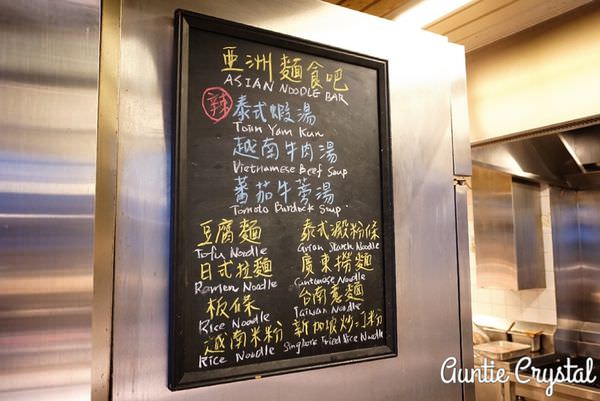 亞洲麵食吧
ASIAN NOODLE BAR
辣 泰式蝦湯
Tom Yam Kun
越南牛肉湯
Vietnamese Beef Soup
蕃茄牛蒡湯
Tomato Burdock Soup
豆腐麵 泰式澱粉條
Tofu Noodle Asian Starch Noodle
日式拉麵 廣東撈麵
Ramen Noodle Cuntonese Noodle
板條 台南意麵
Rice Noodle Taiwan Noodle
越南米粉 新加坡炒米粉
Rice Noodle Singbore Fried Rice Noodle
Auntie Crystal